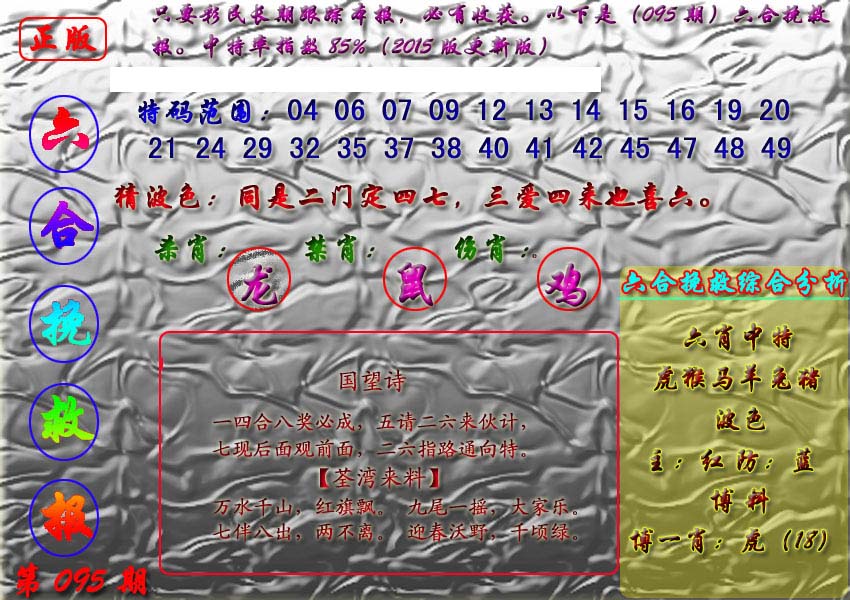 正版
只要彩民长期跟踪本报，必有收获。以下是（095期）六合挽救
报。中特率指数85%（2015版更新版）
六合挽救报
第095期
特码范围：04 06 07 09 12 13 14 15 16 19 20
21 24 29 32 35 37 38 40 41 42 45 47 48 49
猜波色：同是二门定四七，三爱四来也喜六。
杀肖：龙 禁肖：鼠 伤肖：鸡
国望诗
一四合八奖必成，五请二六来伙计，
七现后面观前面，二六指路通向特。
【荃湾来料】
万水千山，红旗飘。 九尾一摇，大家乐。
七伴八出，两不离。 迎春沃野，千顷绿。
六合挽救综合分析
六肖中特
虎猴马羊兔猪
波色
主：红防：蓝
博料
博一肖：虎（18）